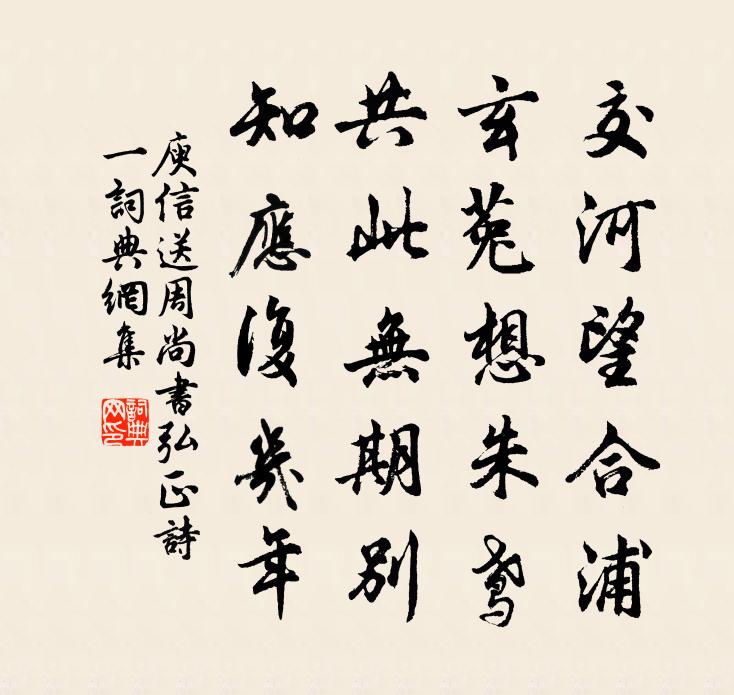 交河望合浦
玄菟想朱鳶
共此無期別
知應復幾年
庾信送周尚書弘正詩
一詞典網集
詞典网印